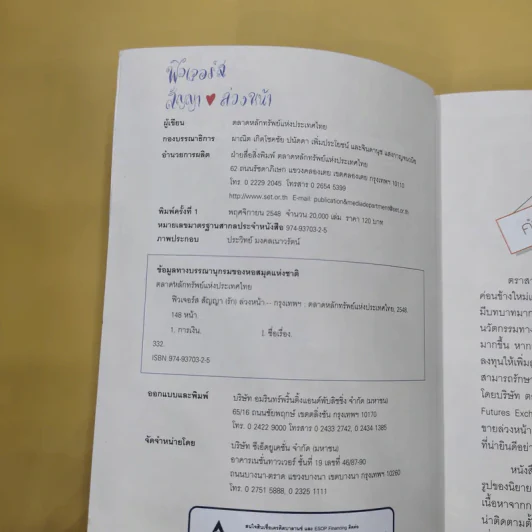 ฟิวเจอร์ส
สัญญา ♥ ล่วงหน้า
ผู้เขียน ตลาดหลักทรัพย์แห่งประเทศไทย
กองบรรณาธิการ มาณิต เกิดโชคชัย ปนัดดา เพิ่มประโยชน์ และจินดานุช แสงกาญจนวนิช
อำนวยการผลิต ฝ่ายสื่อสิ่งพิมพ์ ตลาดหลักทรัพย์แห่งประเทศไทย
62 ถนนรัชดาภิเษก แขวงคลองเตย เขตคลองเตย กรุงเทพฯ 10110
โทร. 0 2229 2045 โทรสาร 0 2654 5399
http://www.set.or.th E-mail: publication&mediadepartment@set.or.th
พิมพ์ครั้งที่ 1 พฤศจิกายน 2548 จำนวน 20,000 เล่ม ราคา 120 บาท
หมายเลขมาตรฐานสากลประจำหนังสือ 974-93703-2-5
ภาพประกอบ ประวิทย์ มงคลเนาวรัตน์
ข้อมูลทางบรรณานุกรมของหอสมุดแห่งชาติ
ตลาดหลักทรัพย์แห่งประเทศไทย
ฟิวเจอร์ส สัญญา (รัก) ล่วงหน้า.-- กรุงเทพฯ : ตลาดหลักทรัพย์แห่งประเทศไทย, 2548.
148 หน้า
1. การเงิน. I. ชื่อเรื่อง.
332.
ISBN 974-93703-2-5
ออกแบบและพิมพ์ บริษัท อมรินทร์พริ้นติ้งแอนด์พับลิชชิ่ง จำกัด (มหาชน)
65/16 ถนนชัยพฤกษ์ เขตตลิ่งชัน กรุงเทพฯ 10170
โทร. 0 2422 9000 โทรสาร 0 2433 2742, 0 2434 1385
จัดจำหน่ายโดย บริษัท ซีเอ็ดยูเคชั่น จำกัด (มหาชน)
อาคารเนชั่นทาวเวอร์ ชั้นที่ 19 เลขที่ 46/87-90
ถนนบางนา-ตราด แขวงบางนา เขตบางนา กรุงเทพฯ 10260
โทร. 0 2751 5888, 0 2325 1111
ตราสา
ค่อนข้างใหม่
มีบทบาทมาก
นวัตกรรมทาง
มากขึ้น หาก
ลงทุนให้เพิ่ม
สามารถรักษา
โดยบริษัท ต
Futures Exch
ขายล่วงหน้า
ที่น่ายินดีอย่า
หนังสื
รูปของนิยาย
เนื้อหาจากก
น่าติดตามด้